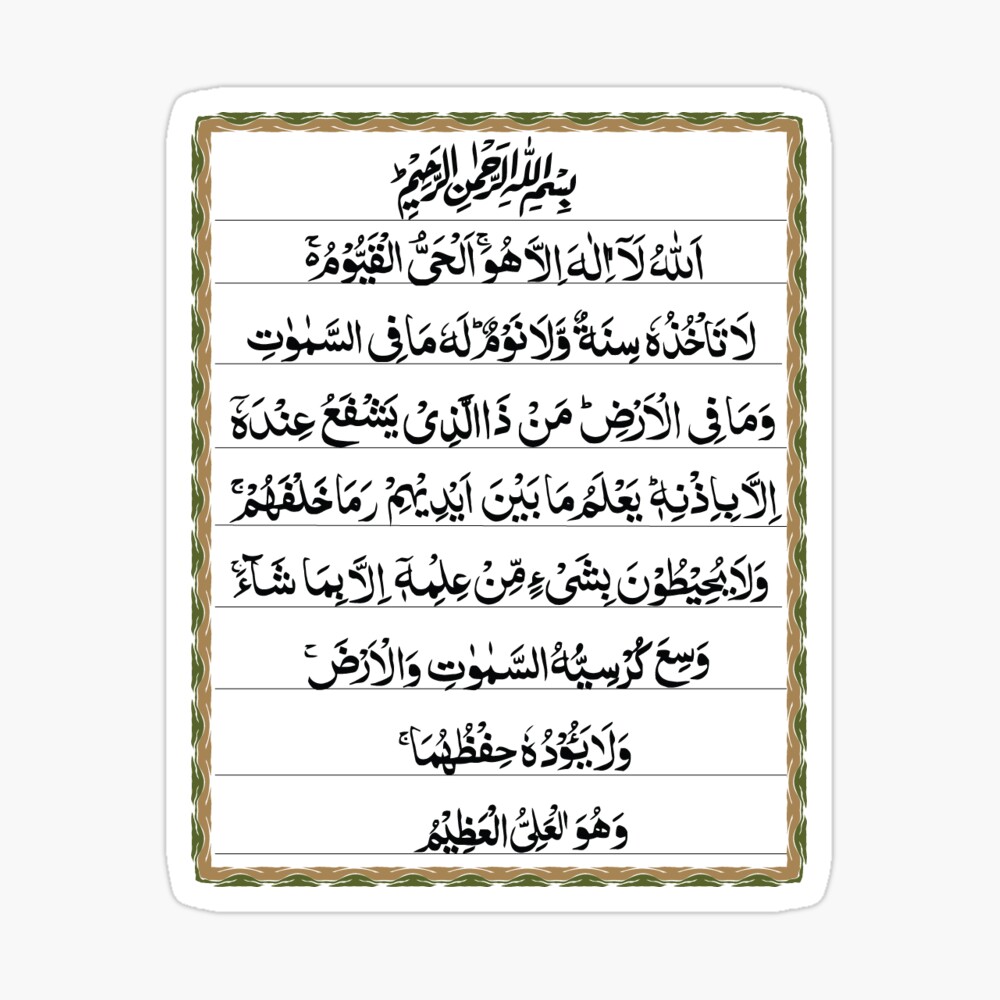 بِسْمِ اللّٰهِ الرَّحْمٰنِ الرَّحِيْمِ ؕ
اَللّٰهُ لَاۤ اِلٰهَ اِلَّا هُوَ ۚ اَلْحَیُّ الْقَيُّوْمُ ۬ۚ
لَا تَاْخُذُهٗ سِنَةٌ وَّلَا نَوْمٌ ؕ لَهٗ مَا فِی السَّمٰوٰتِ
وَمَا فِی الْاَرْضِ ؕ مَنْ ذَا الَّذِیْ يَشْفَعُ عِنْدَهٗۤ
اِلَّا بِاِذْنِهٖ ؕ يَعْلَمُ مَا بَيْنَ اَيْدِيْهِمْ رَمَا خَلْفَهُمْ ۚ
وَلَا يُحِيْطُوْنَ بِشَیْءٍ مِّنْ عِلْمِهٖۤ اِلَّا بِمَا شَآءَ ۚ
وَسِعَ كُرْسِيُّهُ السَّمٰوٰتِ وَالْاَرْضَ ۚ
وَلَا يَـُٔوْدُهٗ حِفْظُهُمَا ۚ
وَهُوَ الْعَلِیُّ الْعَظِيْمُ